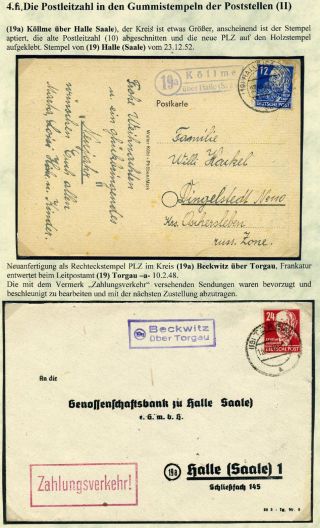 4.6.Die Postleitzahl in den Gummistempeln der Poststellen (II)
(19a) Köllme über Halle Saale), der Kreiß ist etwas Größer, anscheinend ist der Stempel
aptiert, die alte Postleitzahl (10) abgeschnitten und die neue PLZ auf den Holzstempel
aufgeklebt. Stempel von (19) Halle (Saale) vom 23.12.52.
19a Köllme
über Halle (S
12
DEUTSCHE POST
Postkarte
Frohe Weihnachten
u. ein glückbringendes
"Neujahr"
wünschen Euch allen
Martha, u. Kinder.
Familie
Willi Hackel
Dingelstedt
Krs. Oschersleben
russ. Zone.
Neuanfertigung als Rechteckstempel PLZ im Kreis (19a) Beckwitz über Torgau, Frankatur
entwertet beim Leitpostamt (19) Torgau -a- 10.2.48.
Die mit dem Vermerk „Zahlungsverkehr" versehenden Sendungen waren bevorzugt und
beschleunigt zu bearbeiten und mit der nächsten Zustellung abzutragen.
Beckwitz
über Torgau
24
DEUTSCHE POST
a
An die
Genossenschaftsbank zu Halle Saale)
e. G. m. b. H.
19a Halle (Saale) 1
Schließfach 145
Zahlungsverkehr!